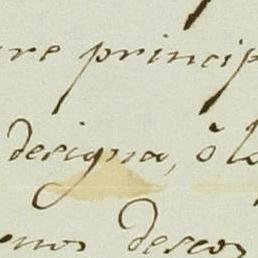 ure princip
designa, ò lo
enos deseos